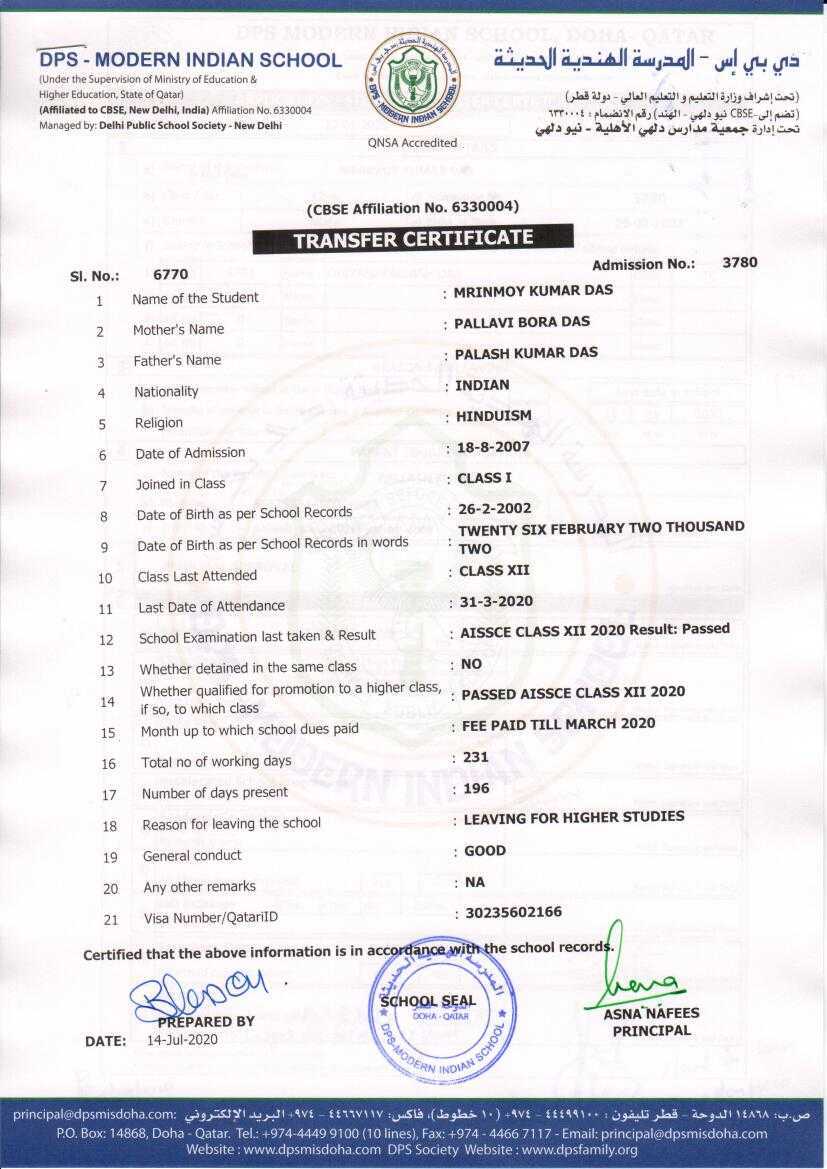 DPS - MODERN INDIAN SCHOOL
(Under the Supervision of Ministry of Education &
Higher Education, State of Qatar)
(Affiliated to CBSE, New Delhi, India) Affiliation No. 6330004
Managed by: Delhi Public School Society - New Delhi
DPS - MODERN INDIAN SCHOOL
QNSA Accredited
دي بي إس - المدرسة الهندية الحديثة
(تحت إشراف وزارة التعليم و التعليم العالي - دولة قطر)
(تضم إلى-CBSE نيو دلهي - الهند) رقم الانضمام : ٦٣٣٠٠٠٤
تحت إدارة جمعية مدارس دلهي الأهلية - نيو دلهي
(CBSE Affiliation No. 6330004)
TRANSFER CERTIFICATE
Sl. No.: 6770 Admission No.: 3780
1 Name of the Student : MRINMOY KUMAR DAS
2 Mother's Name : PALLAVI BORA DAS
3 Father's Name : PALASH KUMAR DAS
4 Nationality : INDIAN
5 Religion : HINDUISM
6 Date of Admission : 18-8-2007
7 Joined in Class : CLASS I
8 Date of Birth as per School Records : 26-2-2002
9 Date of Birth as per School Records in words : TWENTY SIX FEBRUARY TWO THOUSAND
TWO
10 Class Last Attended : CLASS XII
11 Last Date of Attendance : 31-3-2020
12 School Examination last taken & Result : AISSCE CLASS XII 2020 Result: Passed
13 Whether detained in the same class : NO
14 Whether qualified for promotion to a higher class,
if so, to which class : PASSED AISSCE CLASS XII 2020
15 Month up to which school dues paid : FEE PAID TILL MARCH 2020
16 Total no of working days : 231
17 Number of days present : 196
18 Reason for leaving the school : LEAVING FOR HIGHER STUDIES
19 General conduct : GOOD
20 Any other remarks : NA
21 Visa Number/QatariID : 30235602166
Certified that the above information is in accordance with the school records.
المدرسة الهندية الحديثة
SCHOOL SEAL
DOHA - QATAR
DPS-MODERN INDIAN SCHOOL
PREPARED BY
ASNA NAFEES
PRINCIPAL
DATE: 14-Jul-2020
ص.ب: ١٤٨٦٨ الدوحة - قطر تليفون : ٤٤٤٩٩١٠٠ - ٩٧٤+ (١٠ خطوط)، فاكس: ٤٤٦٦٧١١٧ - ٩٧٤+ البريد الإلكتروني :principal@dpsmisdoha.com
P.O. Box: 14868, Doha - Qatar. Tel.: +974-4449 9100 (10 lines), Fax: +974 - 4466 7117 - Email: principal@dpsmisdoha.com
Website : www.dpsmisdoha.com DPS Society Website : www.dpsfamily.org